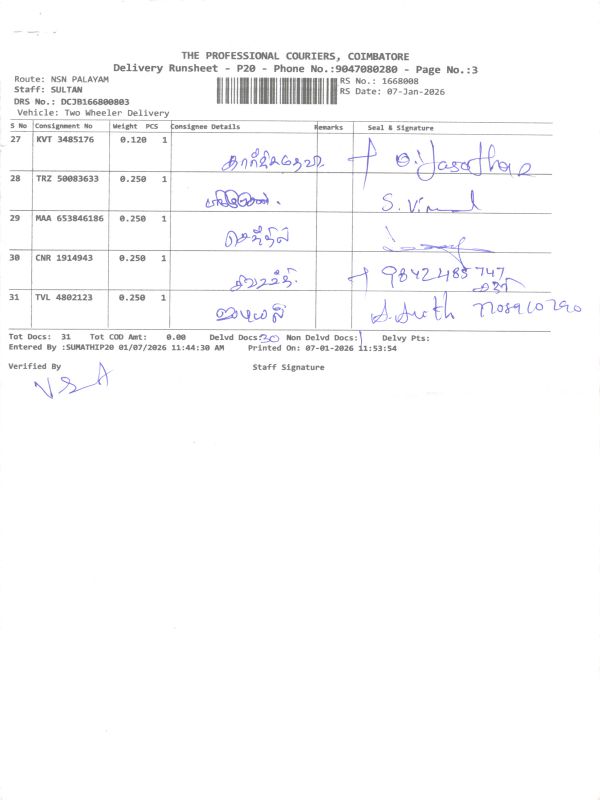 THE PROFESSIONAL COURIERS, COIMBATORE
Delivery Runsheet - P20 - Phone No.:9047080280 - Page No.:3
Route: NSN PALAYAM
RS No.: 1668008
Staff: SULTAN
RS Date: 07-Jan-2026
DRS No.: DCJB166800803
Vehicle: Two Wheeler Delivery
S No Consignment No Weight PCS Consignee Details Remarks Seal & Signature
27 KVT 3485176 0.120 1
28 TRZ 50083633 0.250 1 S. Vimal
29 MAA 653846186 0.250 1 செந்தில்
30 CNR 1914943 0.250 1 9842485747
31 TVL 4802123 0.250 1
Tot Docs: 31 Tot COD Amt: 0.00 Delvd Docs: 30 Non Delvd Docs: 1 Delvy Pts:
Entered By :SUMATHIP20 01/07/2026 11:44:30 AM Printed On: 07-01-2026 11:53:54
Verified By Staff Signature